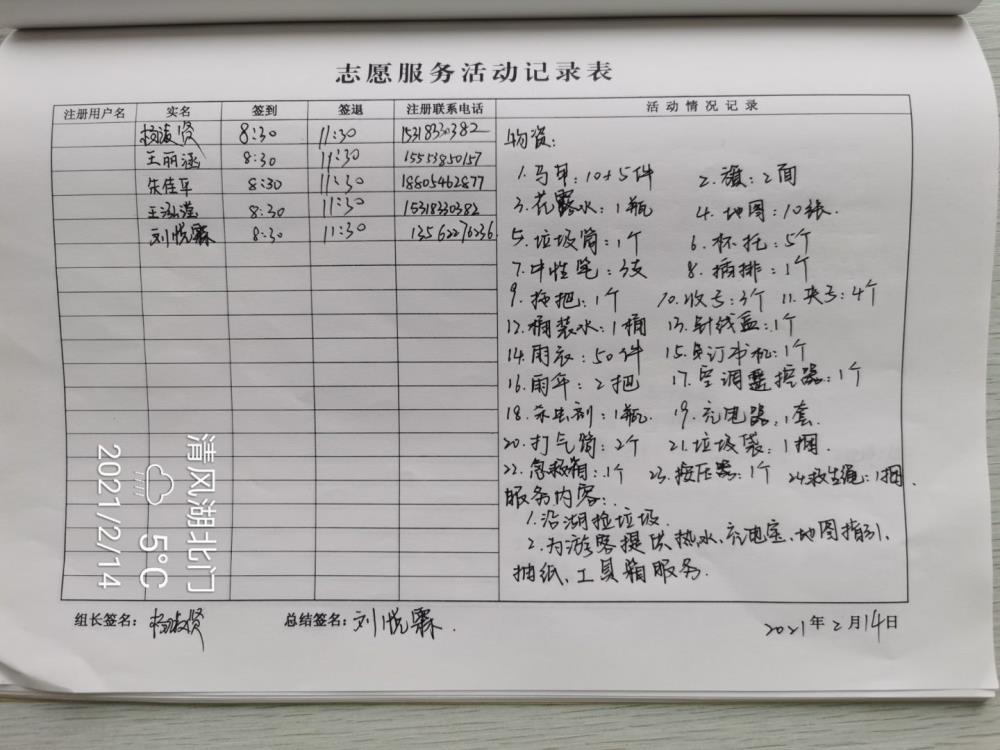 志愿服务活动记录表
注册用户名 实名 签到 签退 注册联系电话 活动情况记录
杨淑贤 8:30 11:30 15318330382
王丽涵 8:30 11:30 15553850157
朱佳平 8:30 11:30 18805462877
王泓滢 8:30 11:30 15318330382
刘悦霖 8:30 11:30 13562276236
物资:
1.马甲:10+5件 2.旗:2面
3.花露水:1瓶 4.地图:10张.
5.垃圾筒:1个 6.杯托:5个
7.中性笔:3支 8.插排:1个
9.拖把:1个 10.收号:3个 11.夹子:4个
12.桶装水:1桶 13.针线盒:1个
14.雨衣:50件 15.订书机:1个
16.雨伞:2把 17.空调遥控器:1个
18.杀虫剂:1瓶. 19.充电器:1套.
20.打气筒:2个 21.垃圾袋:1捆.
22.急救箱:1个 23.按压器:1个 24.救生绳:1捆.
服务内容:
1.沿湖捡垃圾.
2.为游客提供热水、充电宝、地图指引、
抽纸、工具箱服务.
组长签名: 杨淑贤 总结签名: 刘悦霖. 2021年2月14日
清风湖北门
5°C
2021/2/14